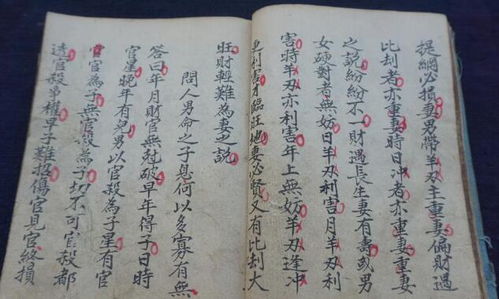 提綱必損妻男帶羊刃主重妻偏財遇
比刦者亦重妻時日冲者亦重妻重妻
之說紛紛不一財遇長生妻有壽或男
女硬對者無妨日羊刃利害月羊刃利
害時羊刃亦利害年上無妨羊刃逢冲
更利害才臨旺地妻必賢又有比刦大
旺財輕難為妻之說
問人男命之子息何以多寡有無
答曰年月財官無冠破早年得子日時
官星晚年有兒男以官殺為子星有官
官為子無官殺為子切不可官殺都
透官殺爭權早子難招傷官見官終損